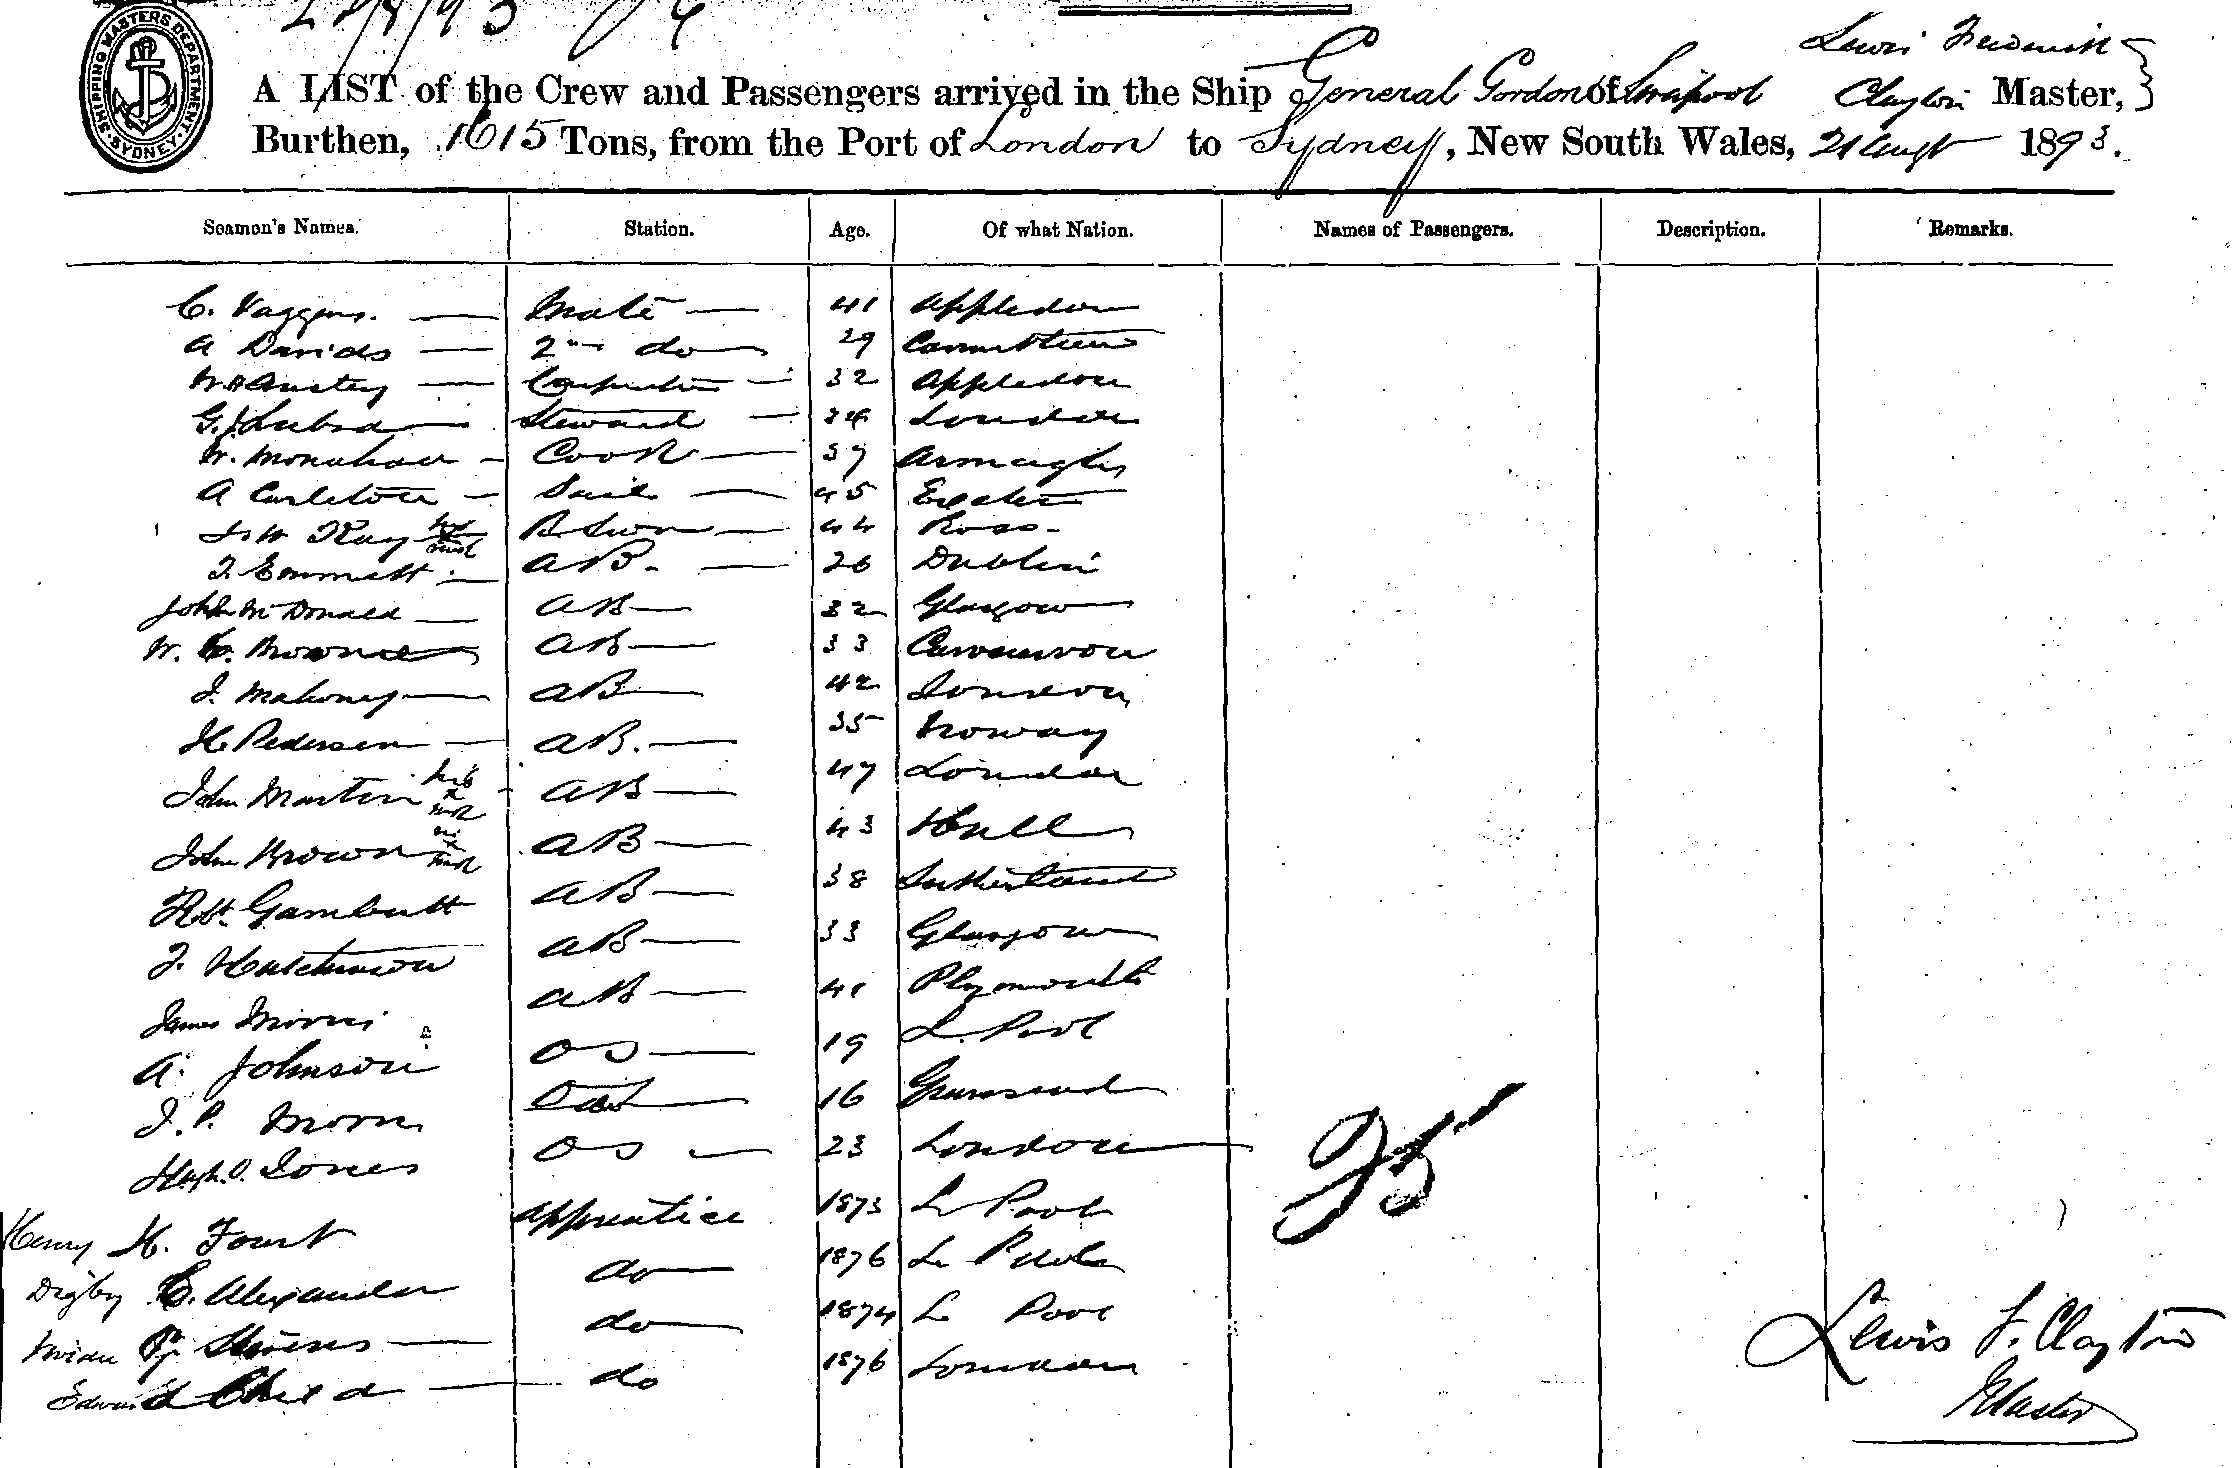 22/8/93
SHIPPING MASTERS DEPARTMENT SYDNEY
Lewis Frederick
A LIST of the Crew and Passengers arrived in the Ship General Gordon of Liverpool Clayton Master,
Burthen, 1615 Tons, from the Port of London to Sydney, New South Wales, 21 Augt 1893.
Seamen's Names. Station. Age. Of what Nation. Names of Passengers. Description. Remarks.
C. Vaggers. Mate 41 Appledore
A Davids 2nd do 29 Carmarthen
Anstey Carpenter 32 Appledore
Steward London
W. Monahan Cook 37 Armagh
A Carleton Sail 45 Exeter
Ray his x mark B Swn 44 Ross
T. Emmett AB. 26 Dublin
John McDonald AB 32 Glasgow
W. C. Browne AB 33 Carnarvon
J. Mahoney AB 42 London
H. Pedersen AB. 35 Norway
John Martin his x mark AB 47 London
John Brown his x mark AB 43 Hull
Robt. Gambutt AB 38 Sutherland
J. Hutchinson AB 33 Glasgow
James Morris AB 41 Plymouth
A. Johnson OS 19 L. Pool
J. P. Morris 16 Gravesend
Hugh O. Jones OS 23 London
Henry H. Foust Apprentice 1873 L Pool
Digby C. Alexander do 1876 L Pool
Stevens do 1874 L Pool
Edward Child do 1876 London
25
Lewis F. Clayton
Master